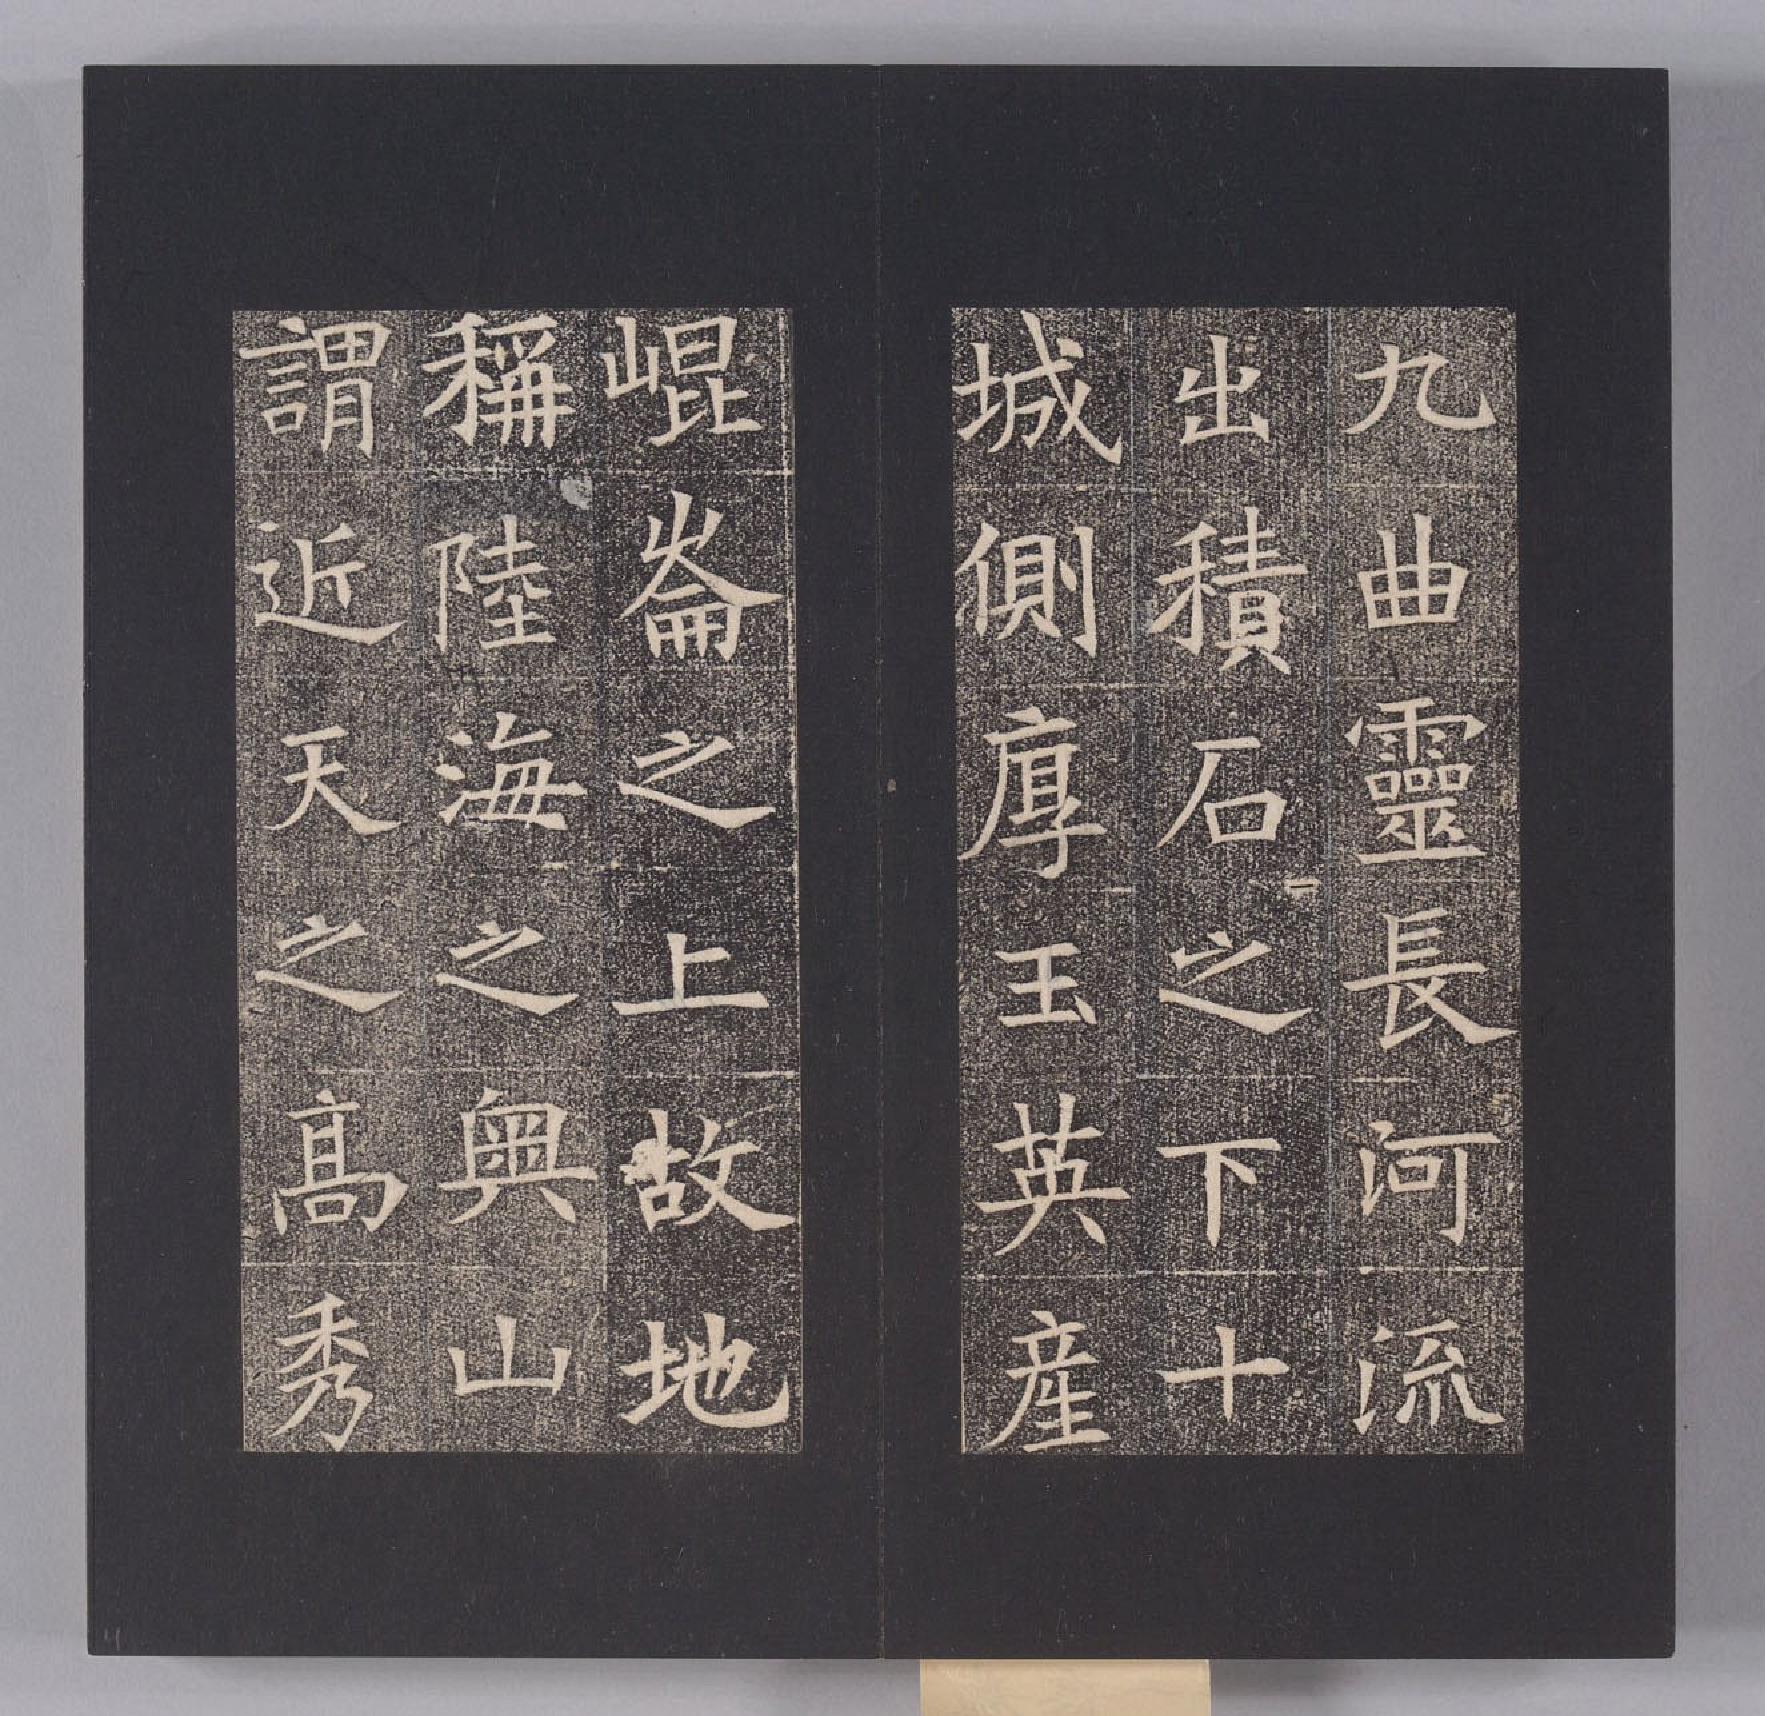 九曲靈長河流
出積石之下十
城側厚玉英產
崐崙之上故地
稱陸海之奧山
謂近天之高秀